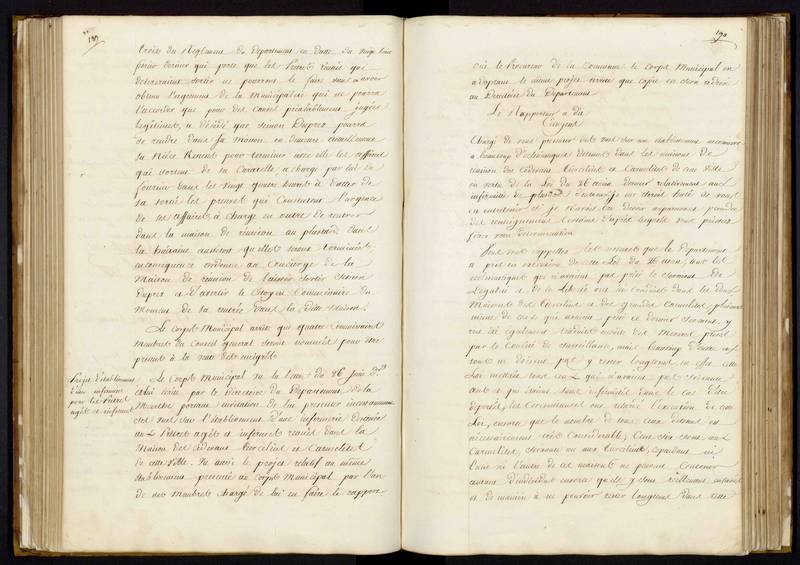 189
trois du Reglement du Departement en datte du vingt huit
fevrier dernier qui porte que les Pretres réunis qui
desireraient sortir ne pourront le faire sans avoir
obtenu l'agrement de la Municipalité qui ne pourra
l'accorder que pour des causes préalablement jugées
legitimes, a décidé que Simon Duprez pourra
se rendre dans sa maison, en demeure
sa Niece pour terminer avec elle les affaires
qui sortent de sa charge par lui de
fournir dans les vingt quatre heures à datter de
sa sortie les preuves qui constatent l'urgence
de ses affaires, à charge en outre de rentrer
dans la maison de réunion au plustard dans
la huitaine aussitot qu'elles seront terminées.
en consequence ordonne au Concierge de la
Maison de réunion de laisser sortir Simon
Duprez et d'avertir le Citoyen Commissaire du
Moment de sa rentrée dans la ditte Maison.
Le Corps Municipal arrete que quatre commissaires
Membres du Conseil general seront nommés pour etre
présents à la
Projet d'etablissement
d'une infirmerie
pour les Pretres
agés et infirmes
Le Corps Municipal vu la lettre du 26 Juin
lui écrite par le Directoire du Departement de la
Meurthe portant invitation de lui presenter incessamment
ses vues sur l'etablissement d'une infirmerie destinée
aux Pretres agés et infirmes réunis dans la
Maison des cidevans Tiercelins et Carmelites
de cette ville. Vu aussi le projet relatif au même
etablissement presenté au Corps Municipal par l'un
de ses Membres chargé de lui en faire le rapport
190
oui le Procureur de la Commune le Corps Municipal en
adoptant le même projet arrete que copie en sera adressée
au Directoire du Departement
Le Rapporteur a dit
Citoyens
Chargé de vous presenter des vues sur un etablissement necessaire
a beaucoup d'eclésiastiques detenus dans les maisons de
réunion des cidevans Tiercelins et Carmelites de cette ville
en vertu de la Loi du 26 aout dernier relativement aux
infirmités de plusieurs d'entreux, je me serois haté de vous
en entretenir si je n'avois cru devoir auparavant prendre
des renseignemens certains d'après lesquels vous puissiez
fixer votre determination
Vous vous rappellez les mesures que le Departement
a prises en execution de cette Loi du 26 aout, tous les
eclésiastiques qui n'avoient pas prêté le serment de
l'egalité et de la Liberté ont été conduits dans les deux
Maisons des Tiercelins et des grandes Carmelites, plusieurs
même de ceux qui avoient prêté ce dernier serment, y
ont été également conduits ensuite des Mesures prises
par le Comité de surveillance, mais beaucoup d'entre eux
tous ne doivent pas y rester longtems en effet cette
Loi mettoit tous ceux qui n'avoient pas soixante
ans et qui étaient sans infirmités dans le cas d'etre
deportés, les circonstances ont retardé l'execution de cette
Loi, ensorte que le nombre de tous ceux detenus est
necessairement très considerable, Cent six sont aux
Carmelites, soixante un aux Tiercelins, cependant ni
l'une ni l'autre de ces maisons ne peuvent contenir
autant d'individus ensorte qu'ils y sont tellement entassés
et de maniere à ne pouvoir rester longtems dans cette